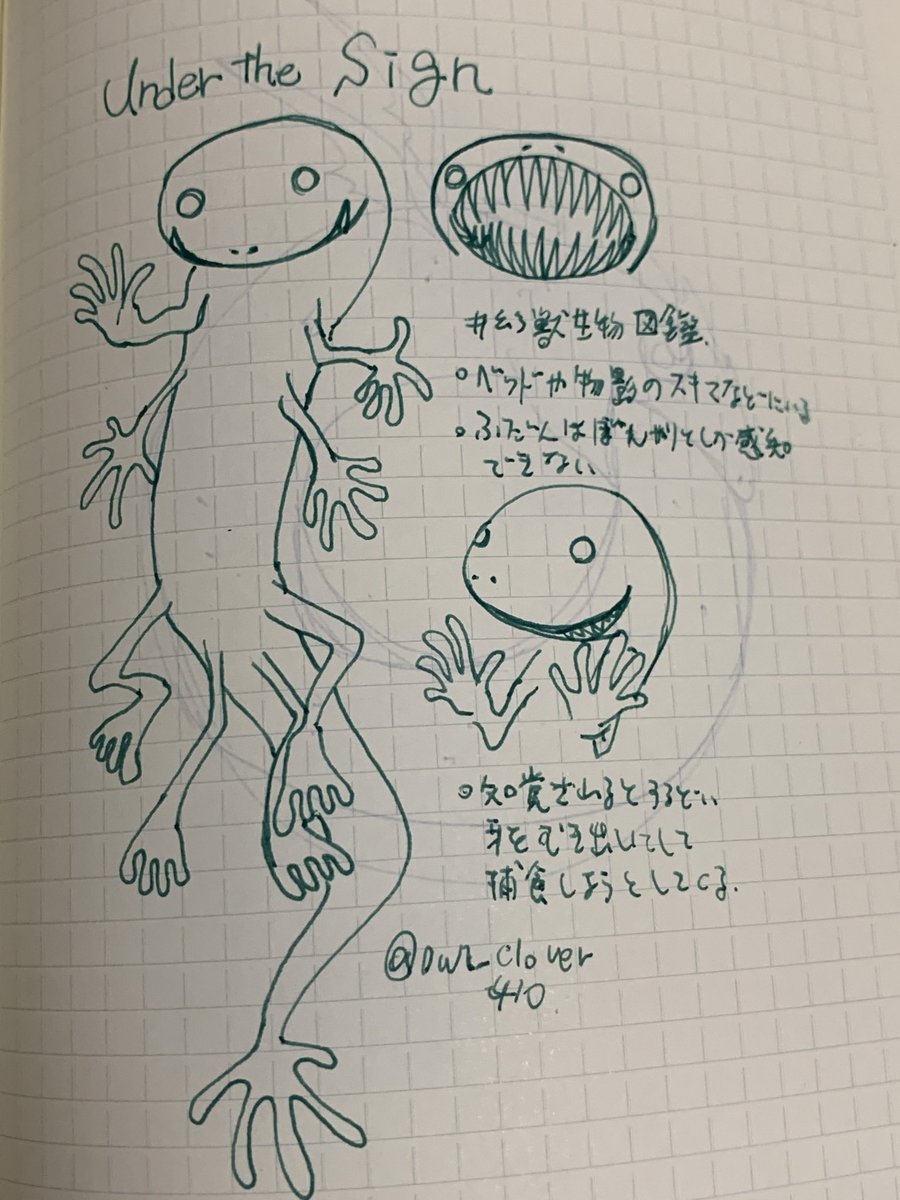 Under the Sign
#幻獣生物図鑑.
○ベッドや物影のスキマなどにいる
○ふだんはぼんやりとしか感知
できない
○知覚されるとするどい
牙をむき出いてして
補食しようとしてくる.
410